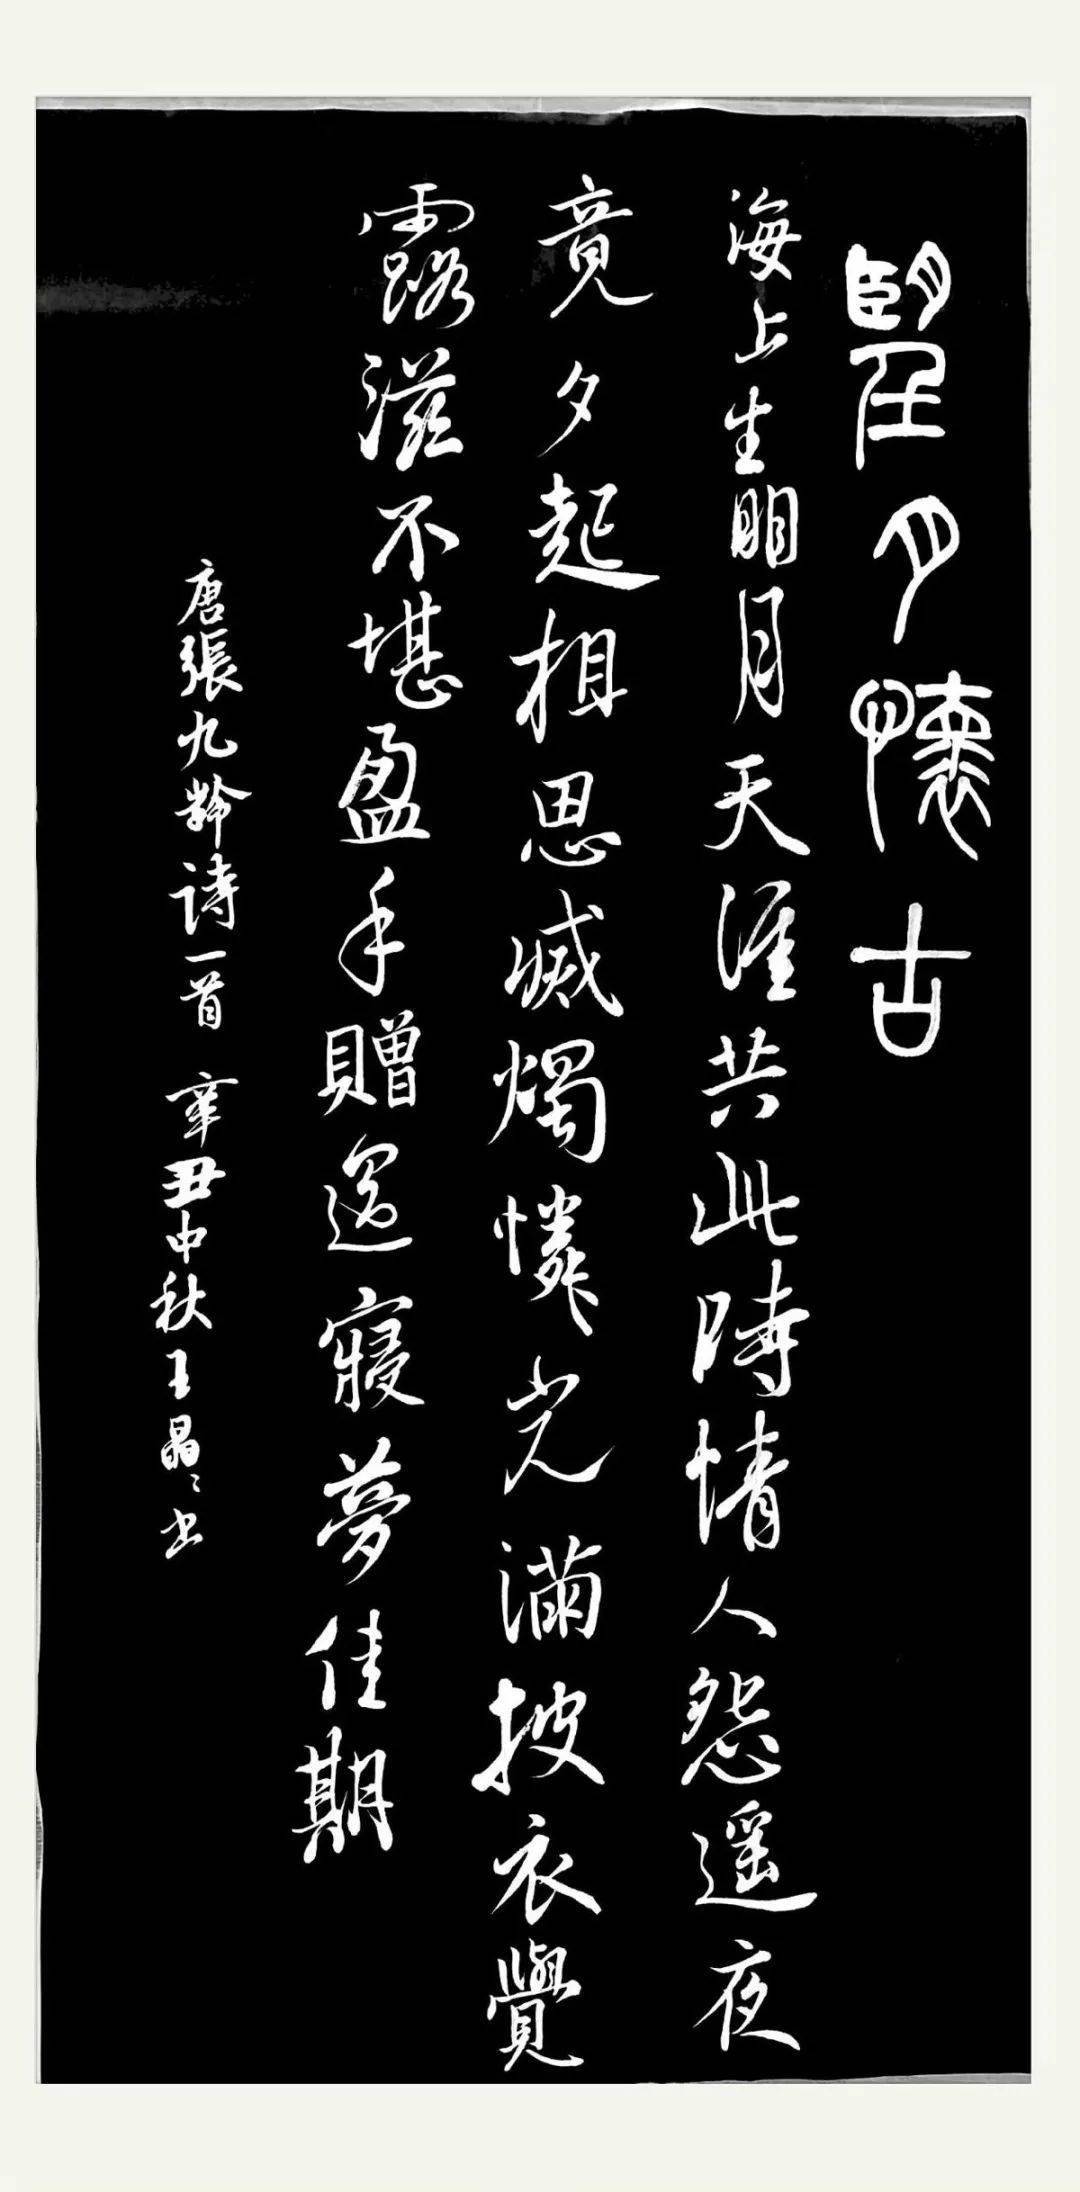 望月懷古
海上生明月天涯共此時情人怨遥夜
竟夕起相思滅燭憐光滿披衣覺
露滋不堪盈手贈還寢夢佳期
唐張九齡詩一首 辛丑中秋王晶晶書